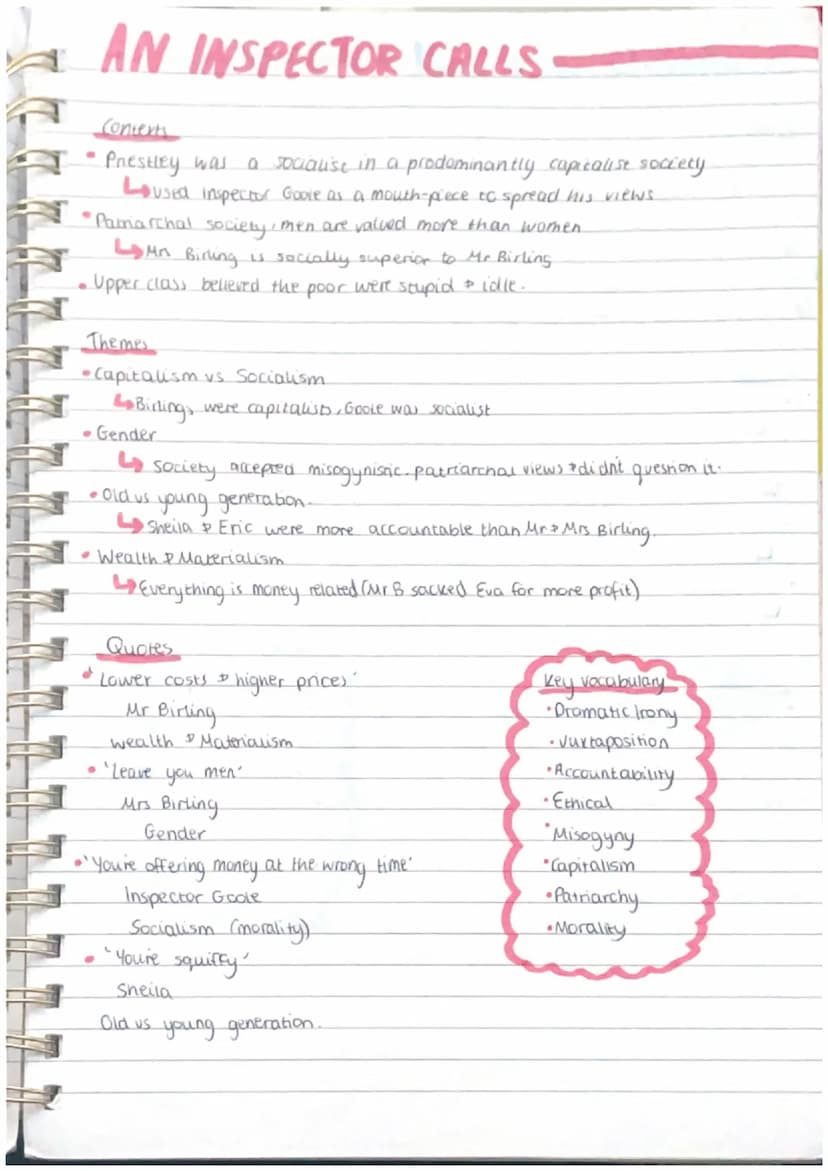 AN INSPECTOR CALLS
Contexts
• Priestley was a socialist in a prodominantly capitalist society
↳ used inspector Goole as a mouth-piece to spread his views
• Patriarchal society, men are valued more than women
↳ Mrs Birling is socially superior to Mr Birling
• Upper class believed the poor were stupid & idle.
Themes
• Capitalism vs Socialism
↳ Birlings were capitalists, Goole was socialist
• Gender
↳ Society accepted misogynistic, patriarchal views & didn't question it.
• Old vs young generation.
↳ Sheila & Eric were more accountable than Mr & Mrs Birling.
• Wealth & Materialism
↳ Everything is money related (Mr B sacked Eva for more profit)
Quotes
• 'Lower costs & higher prices'
Mr Birling
Wealth & Materialism
• 'Leave you men'
Mrs Birling
Gender
• 'You're offering money at the wrong time'
Inspector Goole
Socialism (morality)
• 'You're squiffy'
Sheila
Old vs young generation.
Key vocabulary
• Dramatic Irony
• Juxtaposition
• Accountability
• Ethical
• Misogyny
• Capitalism
• Patriarchy
• Morality